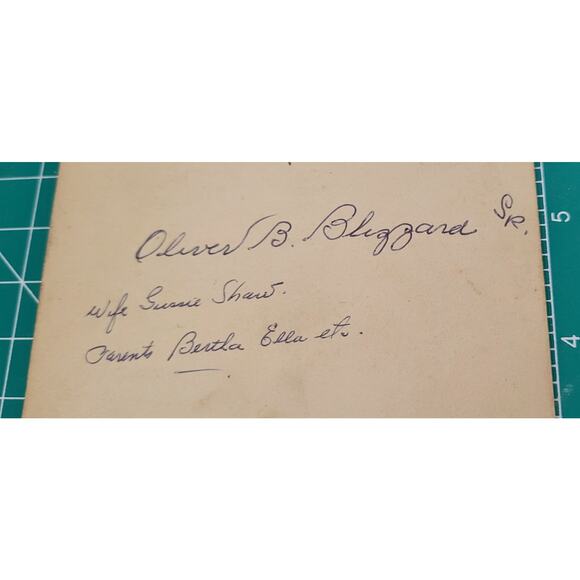 Oliver B. Blizzard SR.
Wife Gussie Shaw.
Parents Bertha Ella etc.
5
4